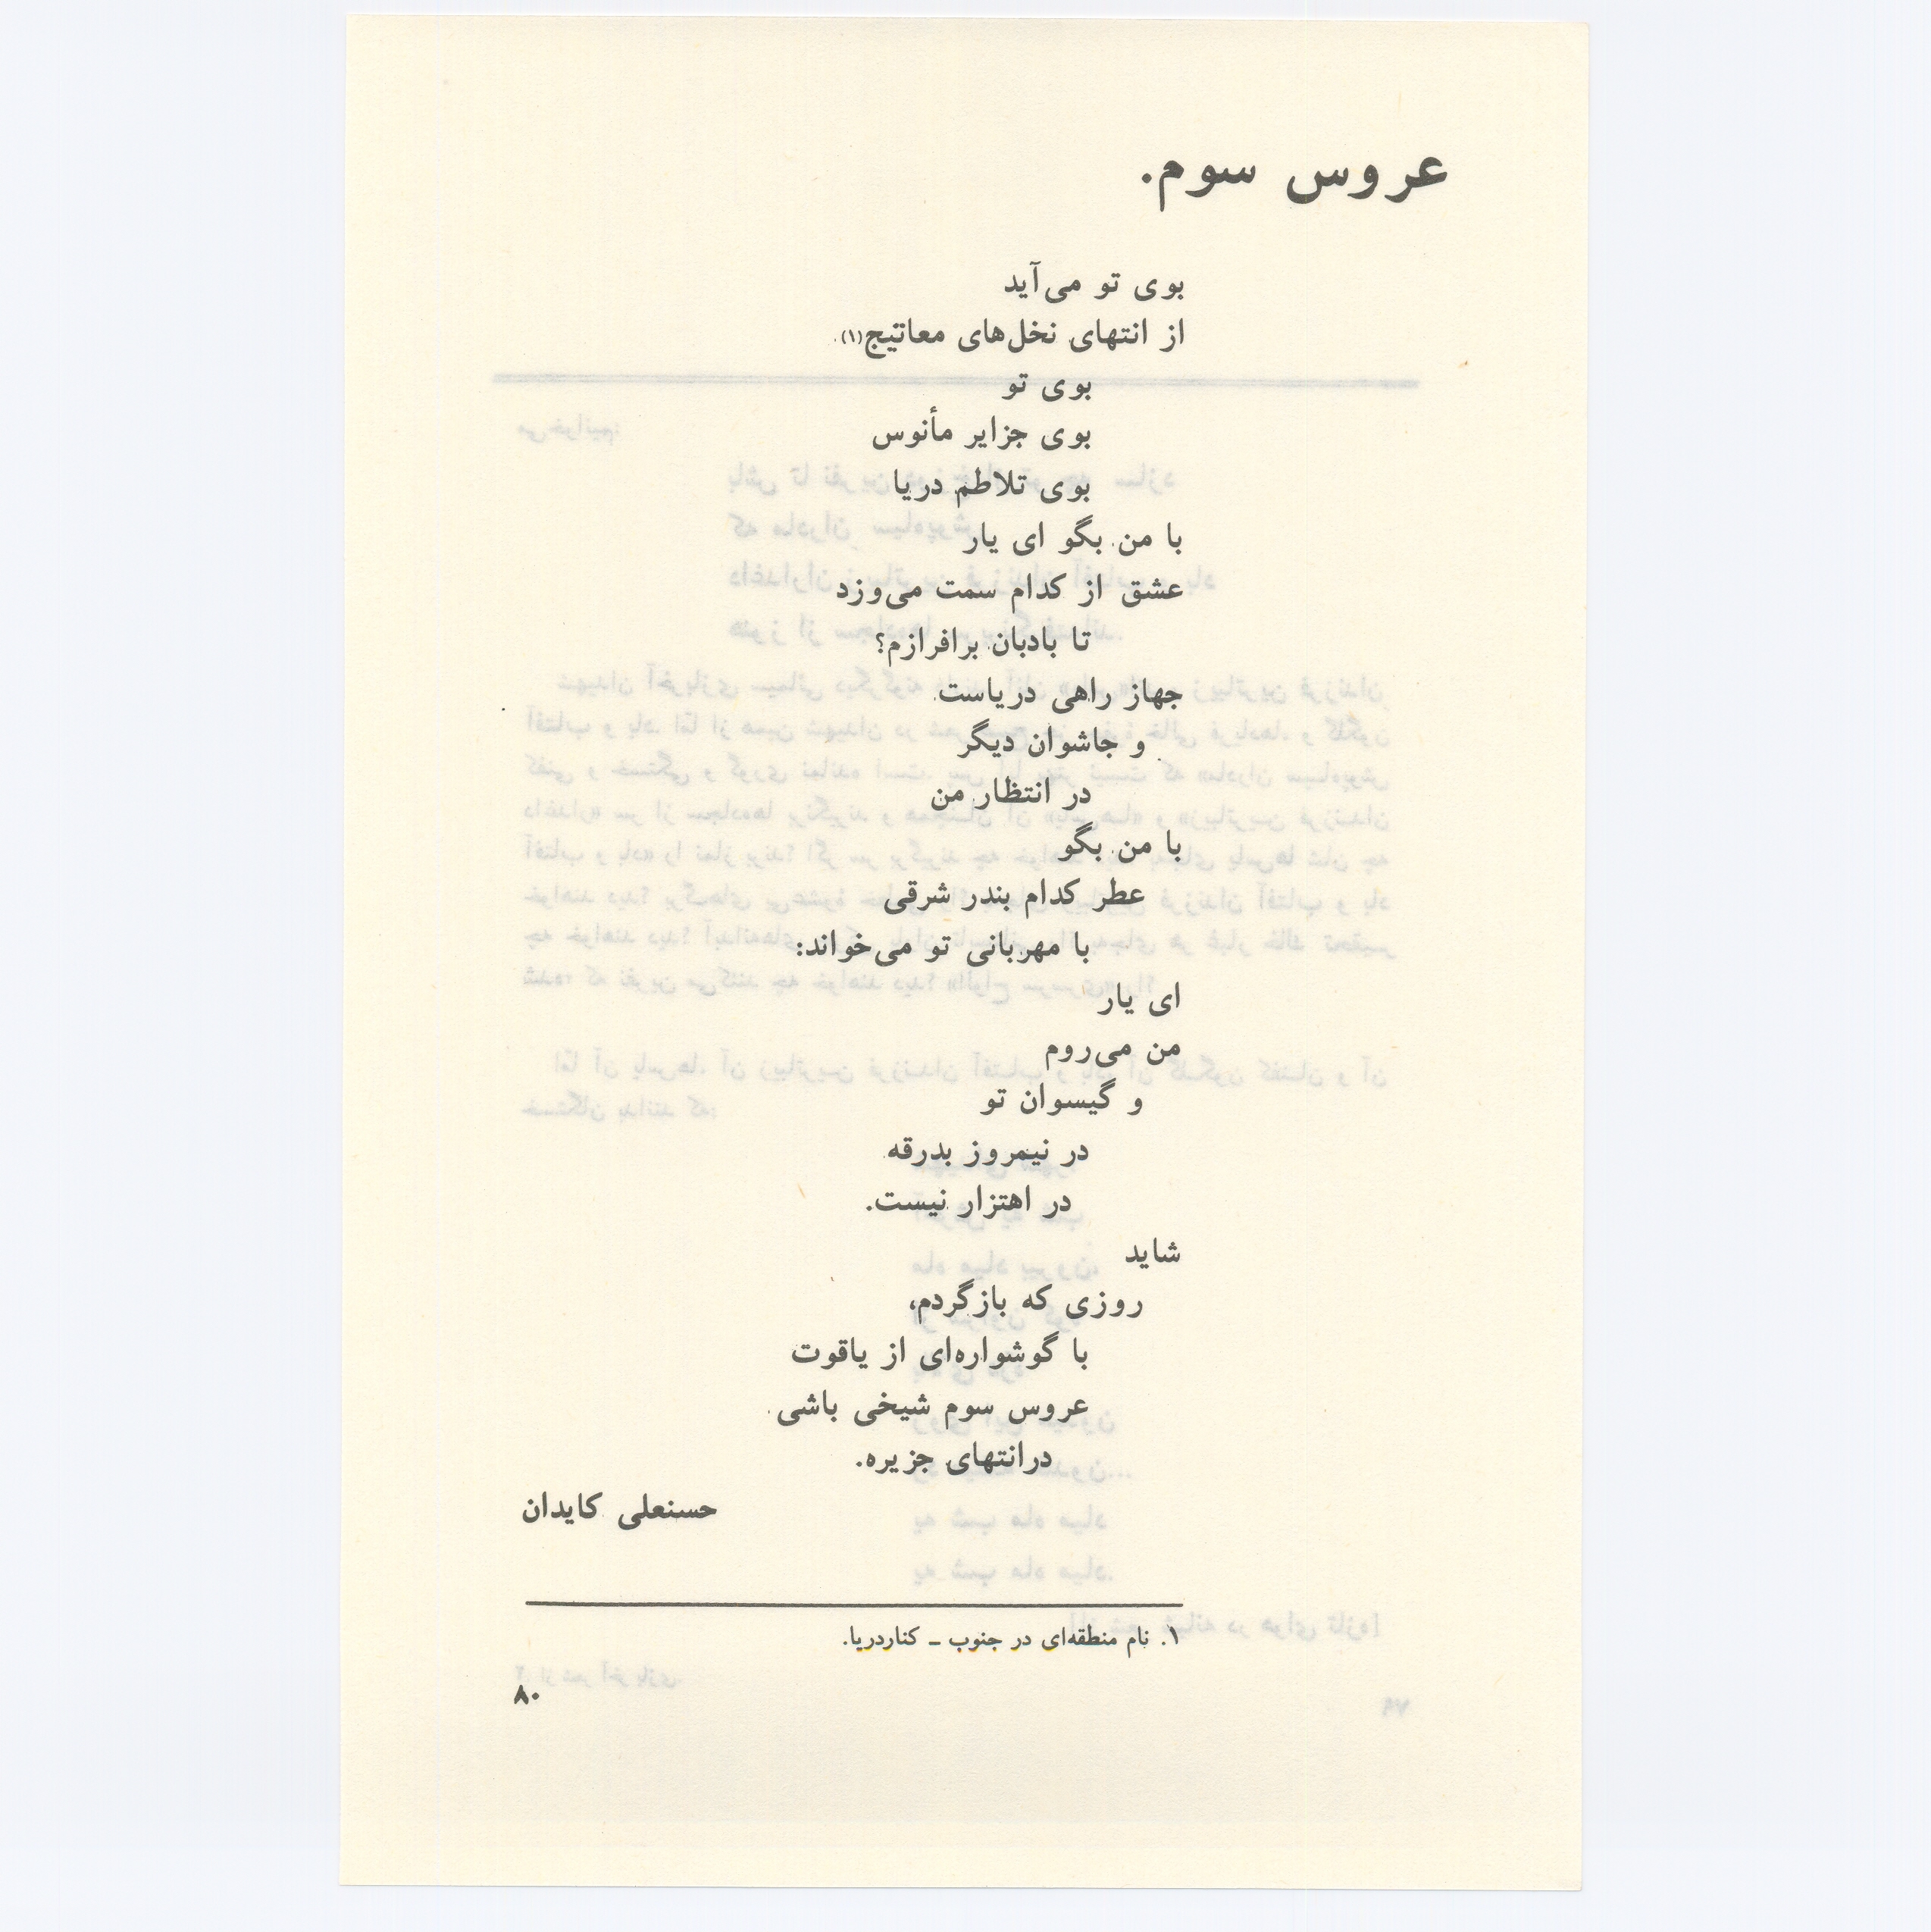 عروس سوم.
بوی تو می‌آید
از انتهای نخل‌های معاتیج(۱)
بوی تو
بوی جزایر مأنوس
بوی تلاطم دریا
با من بگو ای یار
عشق از کدام سمت می‌وزد
تا بادبان برافرازم؟
جهاز راهی دریاست
و جاشوان دیگر
در انتظار من
با من بگو
عطر کدام بندر شرقی
با مهربانی تو می‌خواند:
ای یار
من می‌روم
و گیسوان تو
در نیمروز بدرقه
در اهتزار نیست.
شاید
روزی که بازگردم،
با گوشواره‌ای از یاقوت
عروس سوم شیخی باشی
درانتهای جزیره.
حسنعلی کایدان
۱. نام منطقه‌ای در جنوب ـ کناردریا.
۸۰